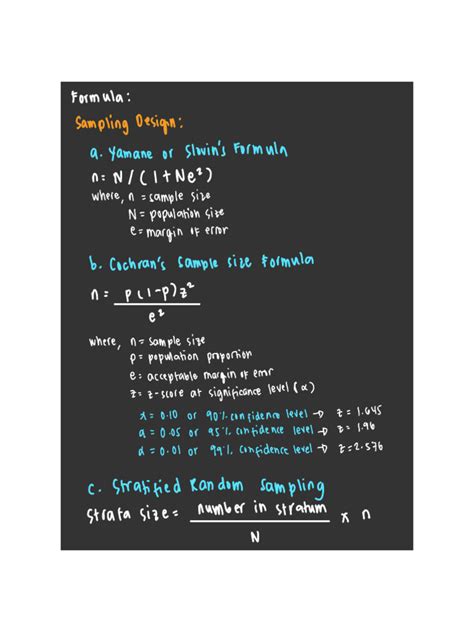 Formula:
Sampling Design:
a. Yamane or Slovin's Formula
n = N / ( 1 + Ne²)
where, n = sample size
N = population size
e = margin of error
b. Cochran's Sample size Formula
n = p(1-p)z²
e²
where, n = sample size
p = population proportion
e = acceptable margin of error
z = z-score at significance level (α)
α = 0.10 or 90% confidence level → z = 1.645
α = 0.05 or 95% confidence level → z = 1.96
α = 0.01 or 99% confidence level → z = 2.576
c. Stratified Random Sampling
Strata size = number in stratum x n
N